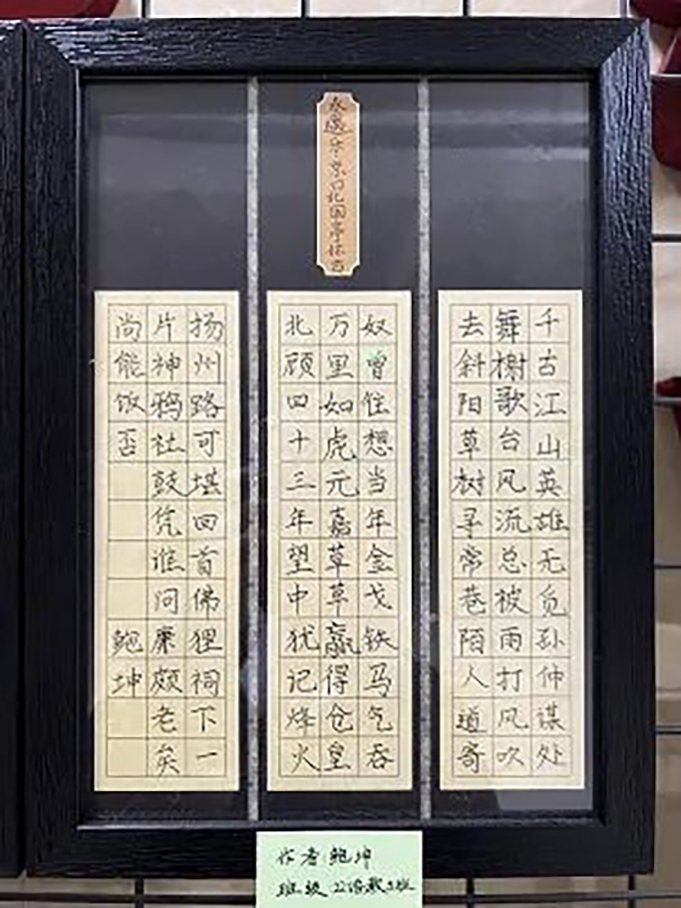 永遇乐·京口北固亭怀古
千古江山英雄无觅孙仲谋处
舞榭歌台风流总被雨打风吹
去斜阳草树寻常巷陌人道寄
奴曾住想当年金戈铁马气吞
万里如虎元嘉草草赢得仓皇
北顾四十三年望中犹记烽火
扬州路可堪回首佛狸祠下一
片神鸦社鼓凭谁问廉颇老矣
尚能饭否 鲍坤
作者 鲍坤
班级 22语教班